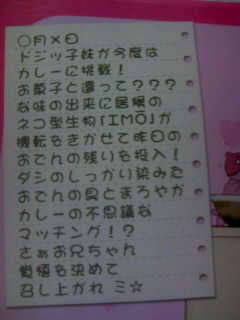 ○月×日
ドジッ子妹が今度は
カレーに挑戦！
お菓子と違って？？？
な味の出来に居候の
ネコ型生物「IMO」が
機転をきかせて昨日の
おでんの残りを投入！
ダシのしっかり染みた
おでんの具とまろやか
カレーの不思議な
マッチング！？
さぁお兄ちゃん
覚悟を決めて
召し上がれ ミ☆